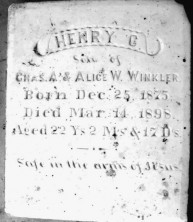 HENRY C.
Son of
CHAS. A. & ALICE W. WINKLER
Born Dec. 25, 1875
Died Mar. 14, 1898
Aged 22 Ys 2 Ms & 17 Ds.
Safe in the arms of Jesus